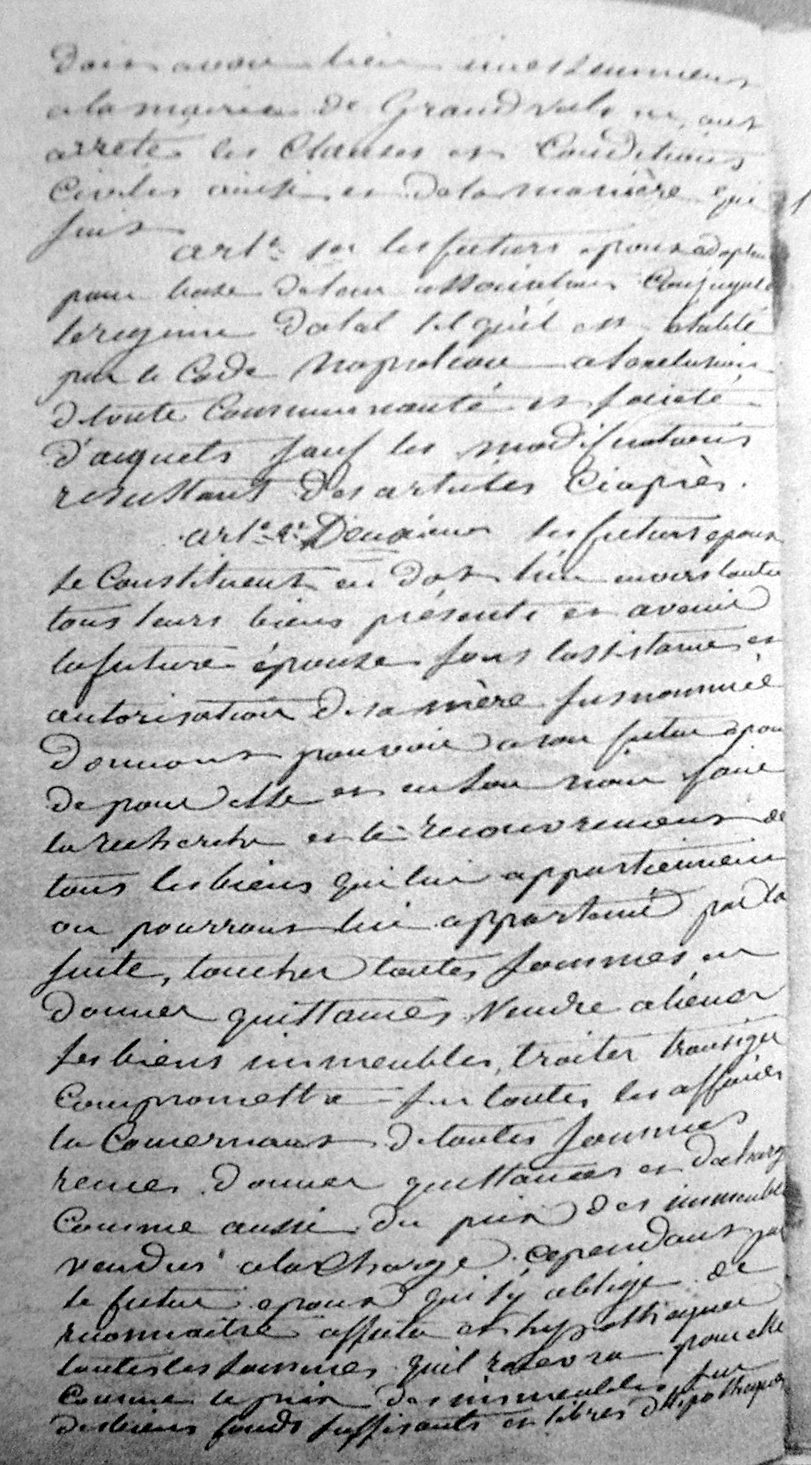 doit avoir lieu incessamment
a la mairie de Grandvals et ont
arreté les Clauses et Conditions
Civiles ainsi et de la manière qui
suit
art.e 1er les futurs epoux adoptent
pour base de leur association Conjugale
le regime dotal tel qu'il est etabli
par le Code Napoleon a l'exclusion
de toute Communauté et société
d'acquets sauf les modifications
resultant des articles Ciaprès.
art.e Deuxieme les futurs epoux
se Constituent en dot l'un envers l'autre
tous leurs biens présents et avenir
la future épouse sous l'assistance et
autorisation de sa mère susnommée
donnant pouvoir a son futur epoux
de pour elle et en son nom faire
la recherche et le recouvrement de
tous les biens qui lui appartiennent
ou pourront lui appartenir par la
suite, toucher toutes sommes en
donner quittances Vendre aliener
ses biens immeubles, traiter transiger
Compromettre sur toutes les affaires
la Concernant de toutes sommes
recues donner quittances et decharge
Comme aussi du prix des immeubles
vendus a la Charge cependant par
le futur epoux qui s'y oblige de
reconnaitre affecter et hypothequer
toutes les sommes qu'il recevra pour elle
Comme le prix des immeubles sur
des biens fonds suffisants et libres d'hipotheques